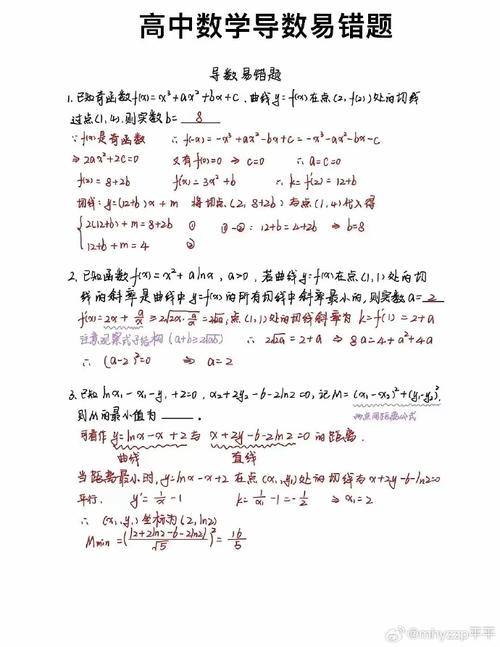 高中数学导数易错题
导数易错题
1. 已知奇函数f(x)=x³+ax²+bx+c,曲线y=f(x)在点(2,f(2))处的切线
过点(1,4).则实数b= 8
∵f(x)是奇函数 ∴f(-x)=-x³+ax²-bx+c=-x³-ax²-bx-c
⇒2ax²+2c=0 又有f(0)=0 ⇒ c=0 ∴a=c=0
f(2)=8+2b f'(x)=3x²+b ∴k=f'(2)=12+b
切线:y=(12+b)x+m 将切点(2,8+2b)与点(1,4)代入得
{2(12+b)+m=8+2b ① ①-②:12+b=4+2b ⇒ b=8
12+b+m=4 ②
2. 已知函数f(x)=x²+alnx,a>0,若曲线y=f(x)在点(1,1)处的切
线的斜率是曲线中y=f(x)的所有切线中斜率最小的,则实数a= 2
f'(x)=2x+a/x≥2√(2x·a/x)=2√2a;点(1,1)处的切线斜率为k=f'(1)=2+a
注意观察式子结构(a+b≥2√ab) ∴2√2a=2+a ⇒ 8a=4+a²+4a
∴(a-2)²=0 ⇒ a=2
3. 已知lnx₁-x₁-y₁+2=0,x₂+2y₂-6-2ln2=0,记M=(x₁-x₂)²+(y₁-y₂)²,
则M的最小值为____。 两点间距离公式
可看作y=lnx-x+2与x+2y-6-2ln2=0的距离.
曲线 直线
当距离最小时,y=lnx-x+2在点(x₁,y₁)处的切线与x+2y-6-ln2=0
平行. y'=1/x-1 k=1/x₁-1=-1/2 ⇒ x₁=2
∴(x₁,y₁)坐标为(2,ln2)
Mmin=(|2+2ln2-6-2ln2|/√5)²=16/5
@mhyzzp平平